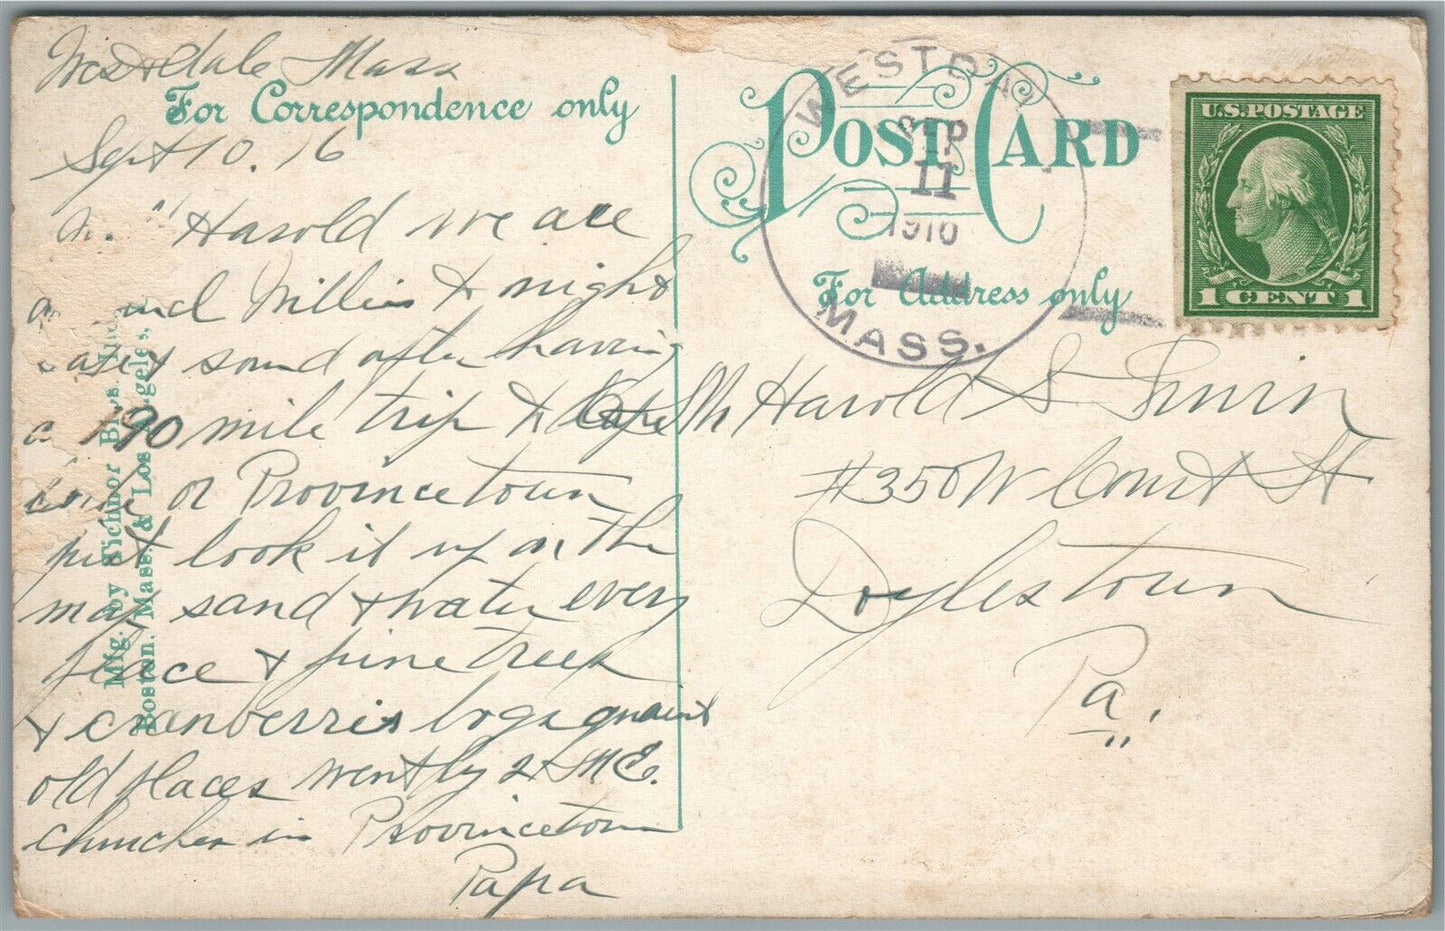 Westdale Mass
For Correspondence only
Sept 10. 16
"Harold we are
and Willis & night
safe & sound after having
a 190 mile trip to Cape
or Provincetown
just look it up on the
map sand & water every
place & pine trees
& cranberris bogs quaint
old places went by 2 M E.
churches in Provincetown
Papa
Mfg. by Tichnor Bros. Inc.
Boston, Mass. & Los Angeles,
POST CARD
For Address only
WESTDA
SEP
11
1916
MASS.
U.S. POSTAGE
1 CENT 1
Mr Harold S. Irwin
#350 W Court St
Doylestown
Pa.